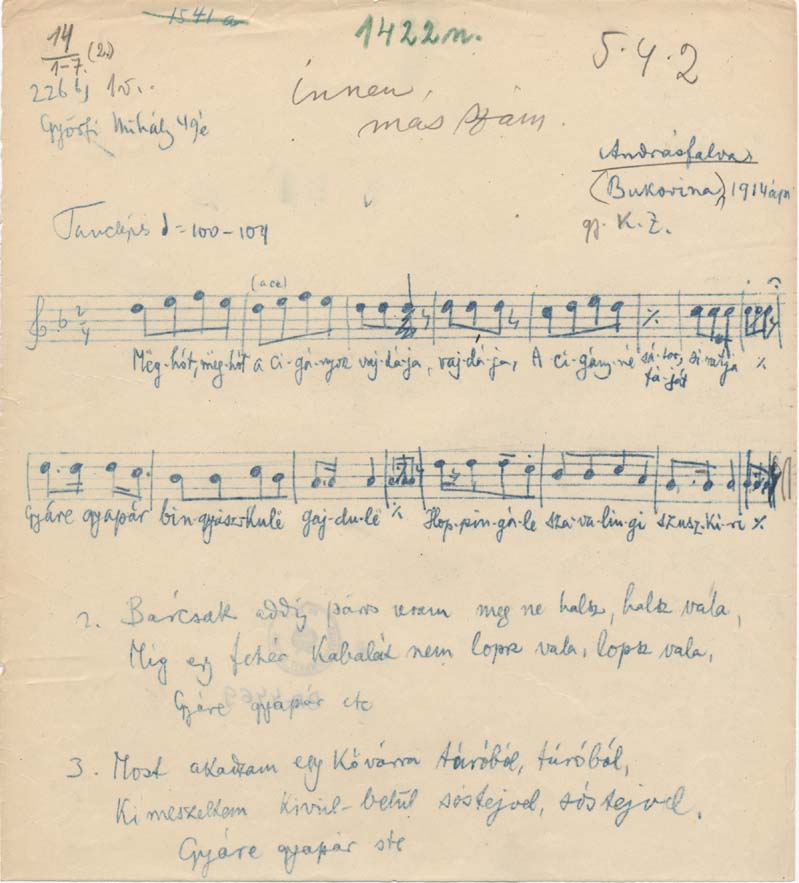 1541 a
1422n.
14
1-7. (2.)
5.4.2
226 bj
innen,
más szám.
Győrfi Mihály 49é
Andrásfalva
(Bukovina), 1914 ápr
gy. K. Z.
Tánclépés = 100-104
(ace)
Még-hót, még-hót a ci-gá-nyok vaj-dá-ja, vaj-dá-ja, A ci-gány-né sá-tor, si-ratja
fá-ját
Gyáre gyapár bin-gyász-kulé gaj-du-lé Hop-pin-gá-le sza-va-lin-gi szusz-ki-ri
2. Bárcsak addig páros uram meg ne halsz, halsz vala,
Míg egy fehér kabalát nem lopsz vala, lopsz vala,
Gyáre gyapár etc
3. Most akadtam egy kővárra túróból, túróból,
Kimeszeltem kivül-belül sóstejvel, sóstejvel.
Gyáre gyapár stc